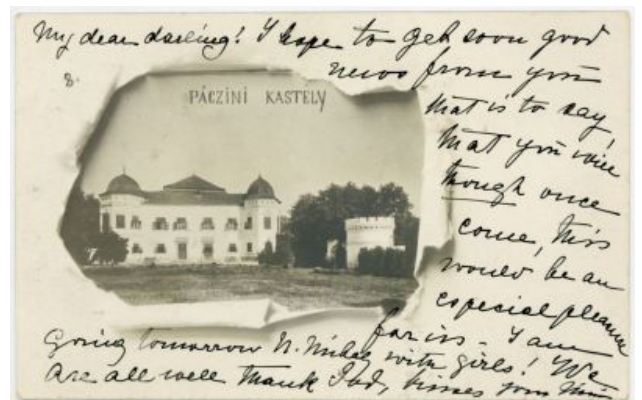 My dear darling! I hope to get soon good
news from you
8.
PÁCZINI KASTELY
that is to say,
that you will
though once
come, this
would be an
especial pleasure
for us - I am
Going tomorrow N. Mihal with girls! We
are all well thank God, kisses your